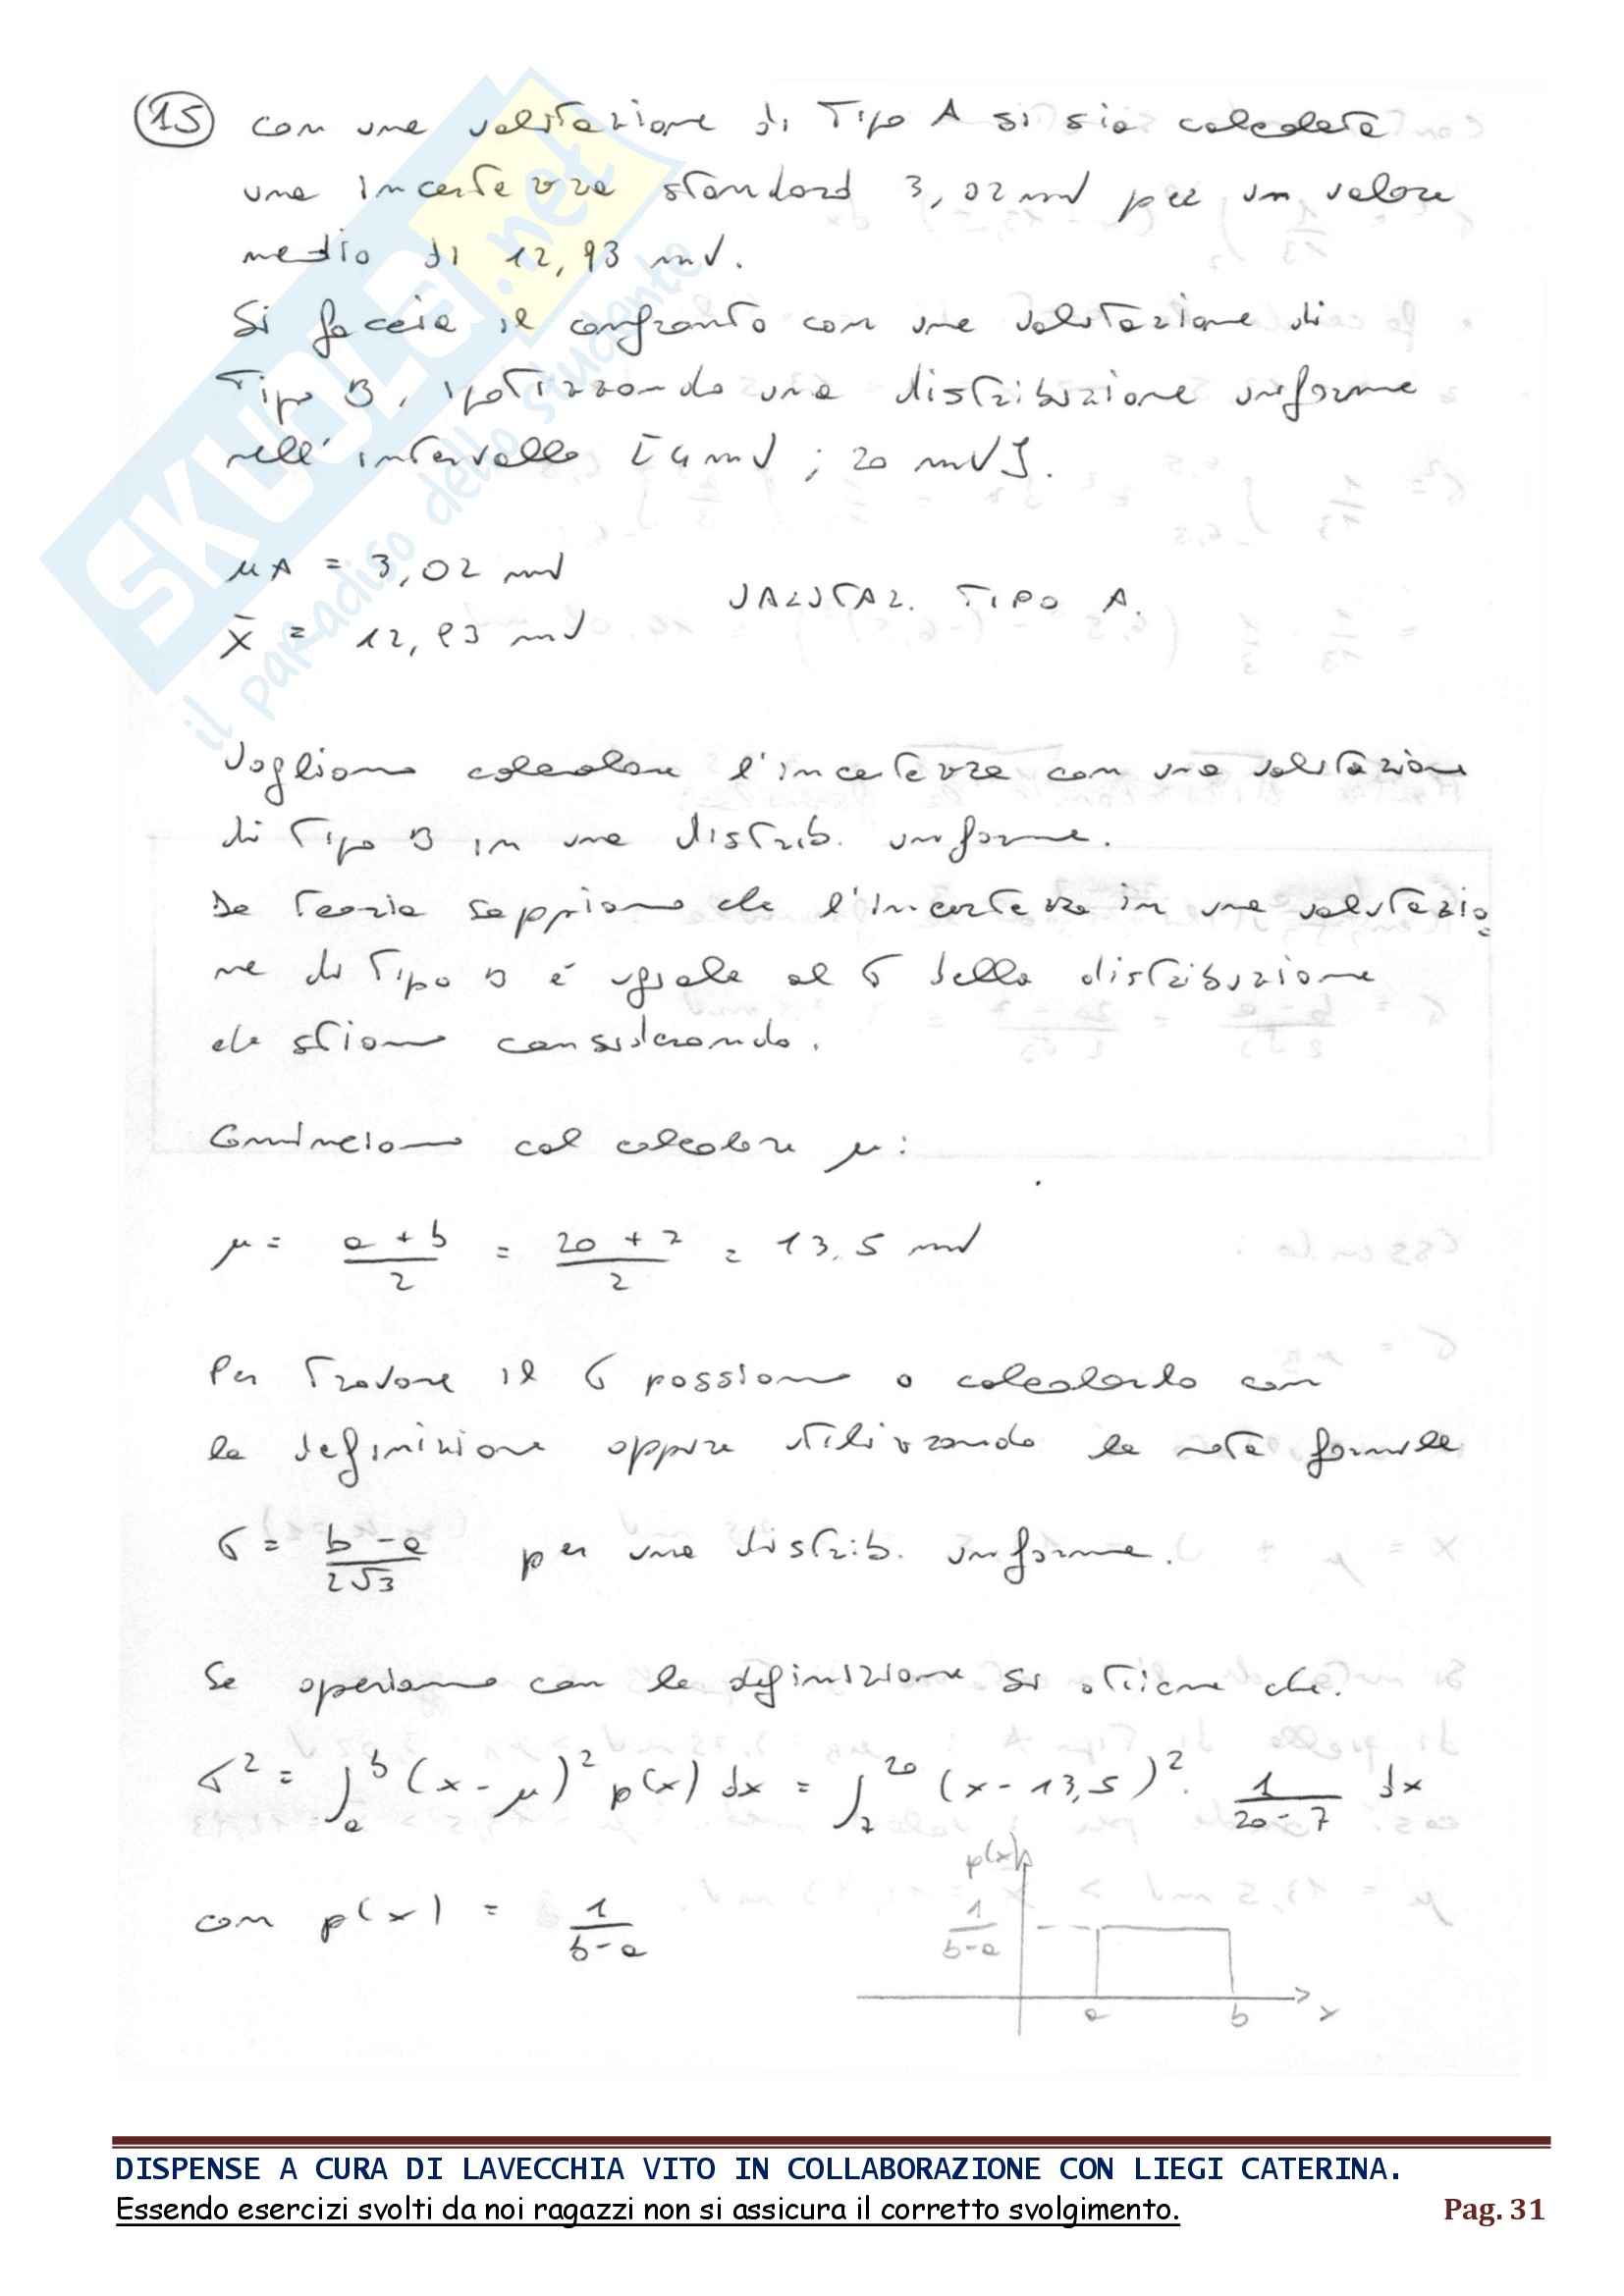 15 con una valutazione di Tipo A si sia calcolata
una incertezza standard 3,02 mV per un valore
medio di 12,93 mV.
Si faccia il confronto con una valutazione di
Tipo B, ipotizzando una distribuzione uniforme
nell'intervallo [4 mV ; 20 mV].
μA = 3,02 mV
VALUTAZ. TIPO A.
x̄ = 12,93 mV
Vogliamo calcolare l'incertezza con una valutazione
di Tipo B in una distrib. uniforme.
Da teoria sappiamo che l'incertezza in una valutazio=
ne di Tipo B è uguale al σ della distribuzione
che stiamo considerando.
Cominciamo col calcolare μ:
μ = a + b / 2 = 20 + 7 / 2 = 13,5 mV
Per trovare il σ possiamo o calcolarlo con
la definizione oppure utilizzando la nota formula
σ = b - a / 2√3 per una distrib. uniforme.
Se operiamo con la definizione si ottiene che.
σ² = ∫ₐᵇ (x - μ)² p(x) dx = ∫₇²⁰ (x - 13,5)² · 1 / 20 - 7 dx
con p(x) = 1 / b - a
p(x)
1 / b - a
a b x
SKUOLA.net
il paradiso dello studente
DISPENSE A CURA DI LAVECCHIA VITO IN COLLABORAZIONE CON LIEGI CATERINA.
Essendo esercizi svolti da noi ragazzi non si assicura il corretto svolgimento.
Pag. 31